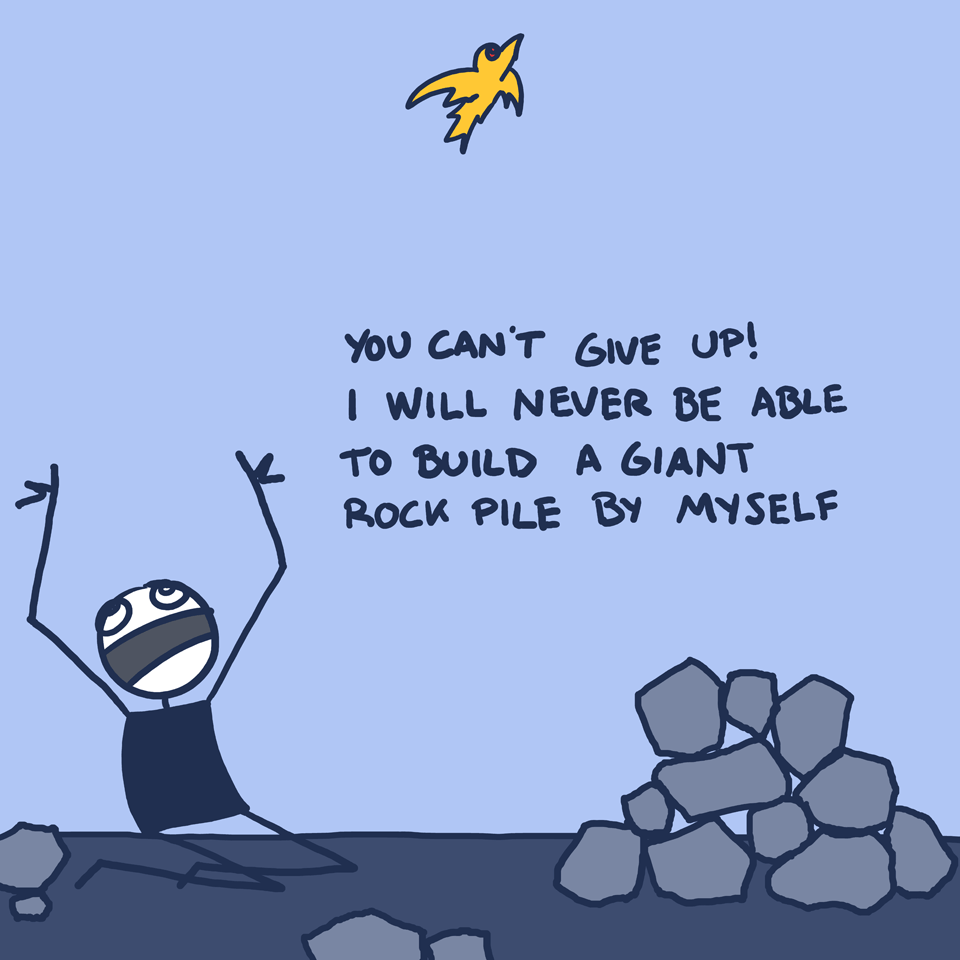 YOU CAN'T GIVE UP!
I WILL NEVER BE ABLE
TO BUILD A GIANT
ROCK PILE BY MYSELF